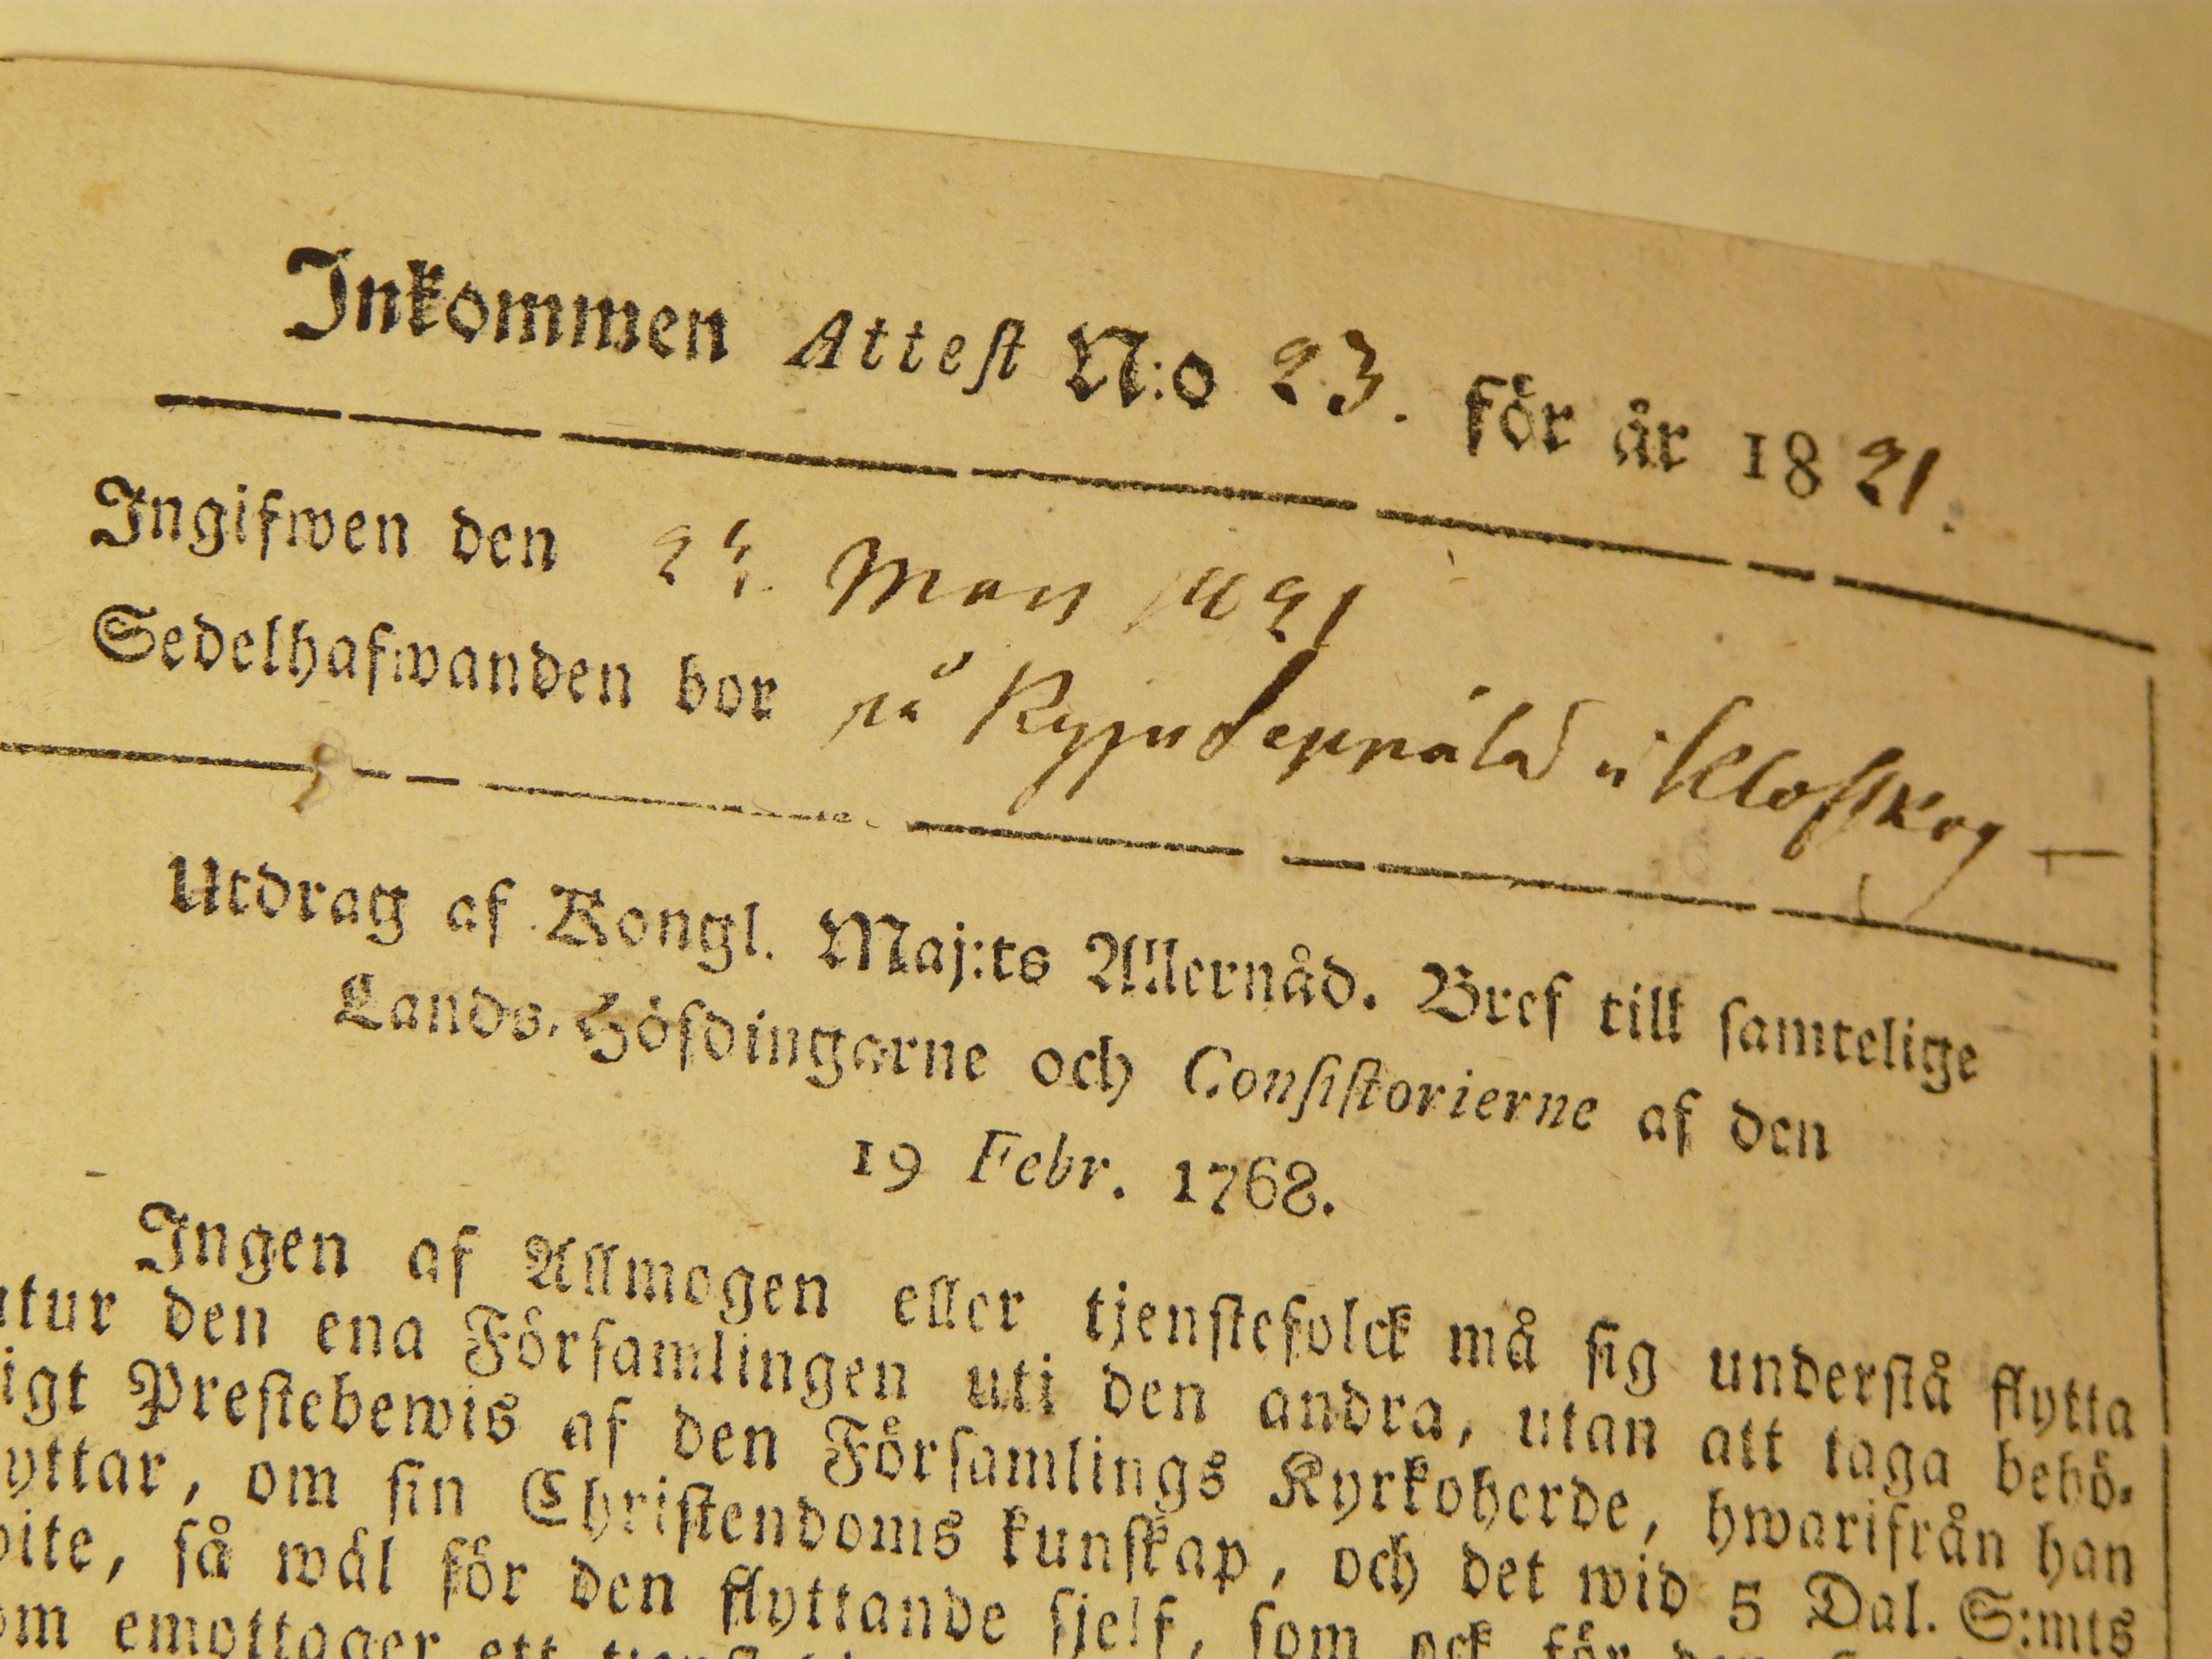 Inkommen Attest N:o 23. för år 1821.
Ingifwen den 24. Mars 1821
Sedelhafwanden bor på
Utdrag af Kongl. Maj:ts Allernåd. Bref till samtelige
Lands-Höfdingarne och Consistorierne af den
19 Febr. 1768.
Ingen af Allmogen eller tjenstefolck må sig understå flytta
utur den ena Församlingen uti den andra, utan att taga behö-
igt Prestebewis af den Församlings Kyrkoherde, hwarifrån han
yttar, om sin Christendoms kunskap, och det wid 5 Dal. S:mts
ite, så wäl för den flyttande sjelf, som ock för
om emottager ett